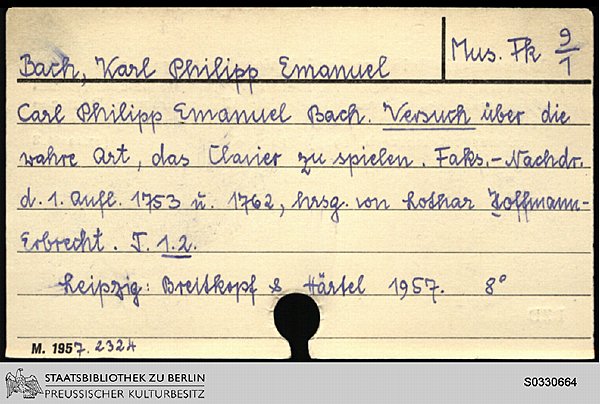 Bach, Karl Philipp Emanuel
Mus. Fk 9/1
Carl Philipp Emanuel Bach. Versuch über die
wahre Art, das Clavier zu spielen. Faks.-Nachdr.
d. 1. Aufl. 1753 u. 1762, hrsg. von Lothar Hoffmann-
Erbrecht. T. 1.2.
Leipzig: Breitkopf & Härtel 1957. 8°
M. 1957. 2324
STAATSBIBLIOTHEK ZU BERLIN
PREUSSISCHER KULTURBESITZ
S0330664